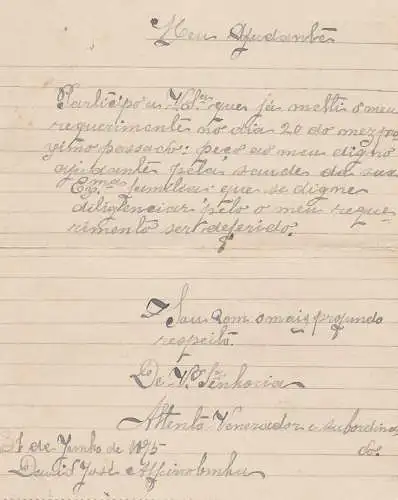 Meu Ajudante
Participo a V.S.ria que já metti o meu
requerimento no dia 20 do mez pro
ximo passado: peço ao meu digno
ajudante pela saude da sua
Ex.ma familia que se digne
diligenciar pelo o meu reque
rimento ser deferido.
Sou com o mais profundo
respeito.
De V.ª Senhoria
Attento Venerador e subordina
do.
1 de Junho de 1895
David José